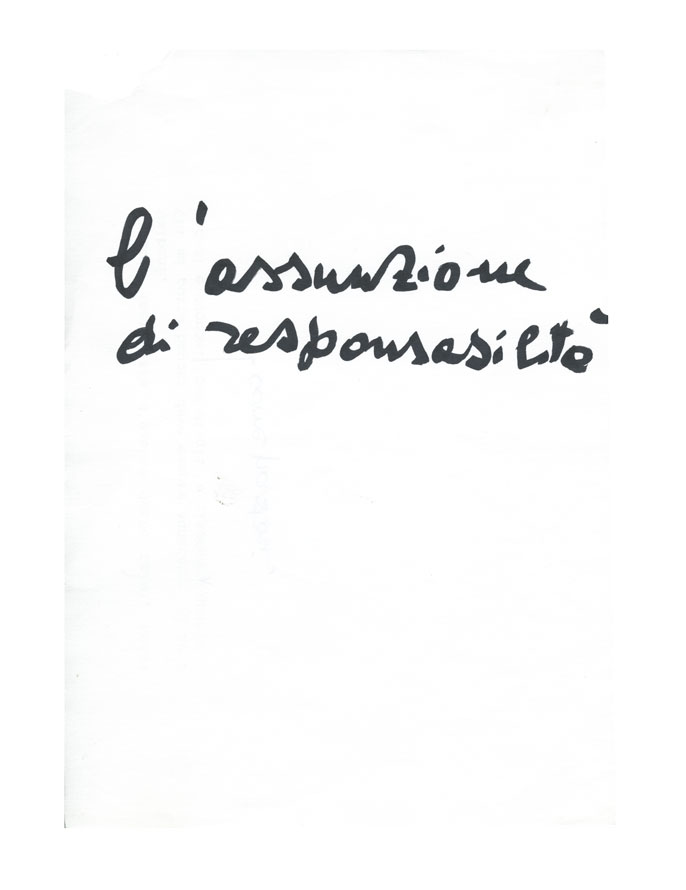 l'assunzione
di responsabilità